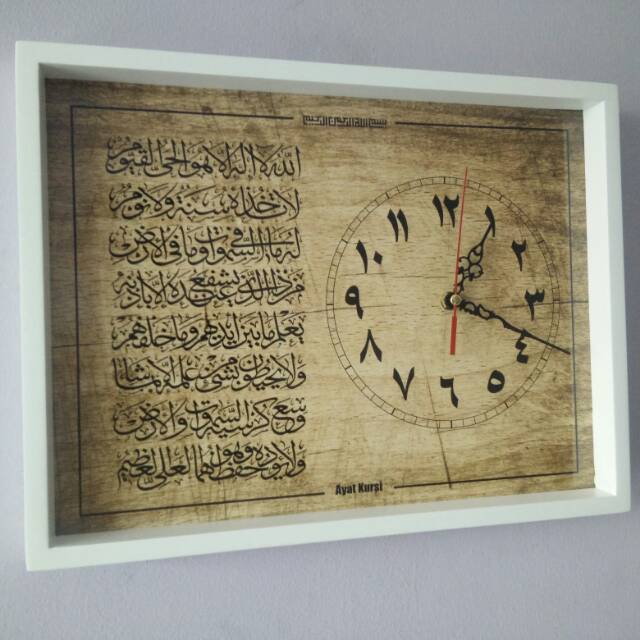 بسم الله الرحمن الرحيم
الله لا إله إلا هو الحي القيوم
لا تأخذه سنة ولا نوم
له ما في السموات وما في الأرض
من ذا الذي يشفع عنده إلا بإذنه
يعلم ما بين أيديهم وما خلفهم
ولا يحيطون بشيء من علمه إلا بما شاء
وسع كرسيه السموات والأرض
ولا يؤده حفظهما وهو العلي العظيم
١٢
١
٢
٣
٤
٥
٦
٧
٨
٩
١٠
١١
Ayat Kursi